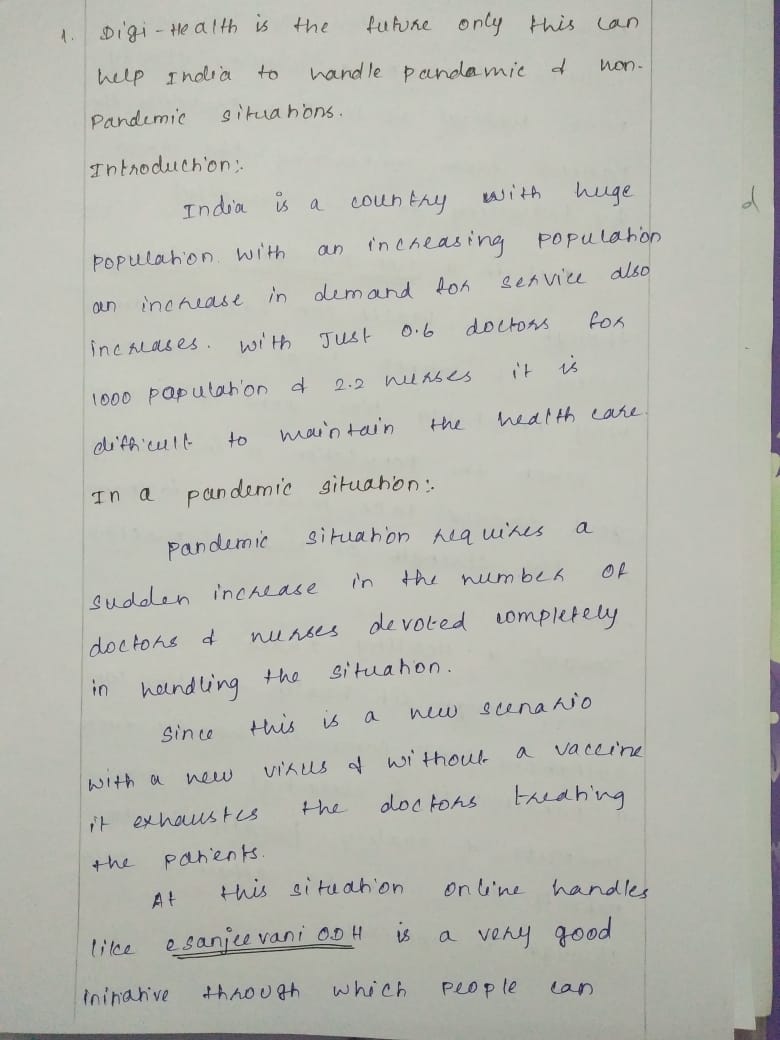 1. Digi-Health is the future only this can
help India to handle pandamic & non-
Pandemic situations.
Introduction:.
India is a country with huge
population. With an increasing population
an increase in demand for service also
increases. With Just 0.6 doctors for
1000 papulation & 2.2 nurses it is
difficult to maintain the health care.
In a pandemic situation:.
Pandemic situation requires a
sudden increase in the number of
doctors & nurses devoted completely
in handling the situation.
Since this is a new scenario
with a new virus & without a vaccine
it exhaustes the doctors treating
the patients.
At this situation online handles
like esanjeevani ODH is a very good
initiative through which people can
d